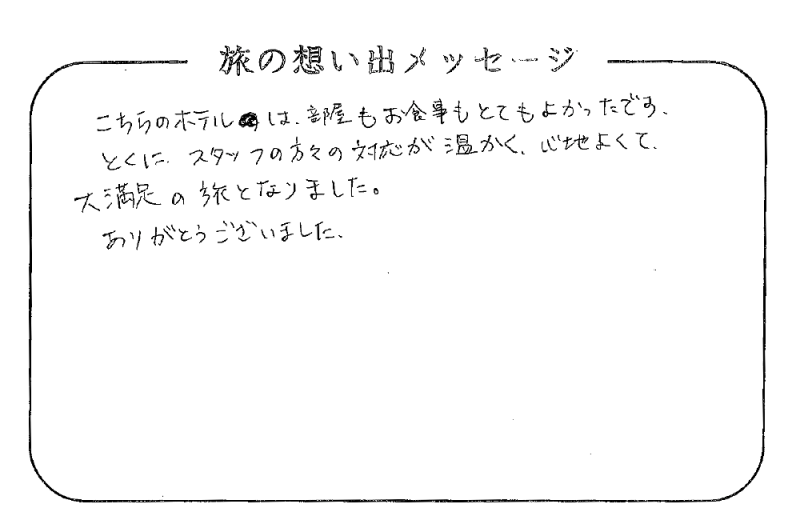 旅の想い出メッセージ
こちらのホテルは、部屋もお食事もとてもよかったです、
とくに、スタッフの方々の対応が温かく、心地よくて、
大満足の旅となりました。
ありがとうございました、